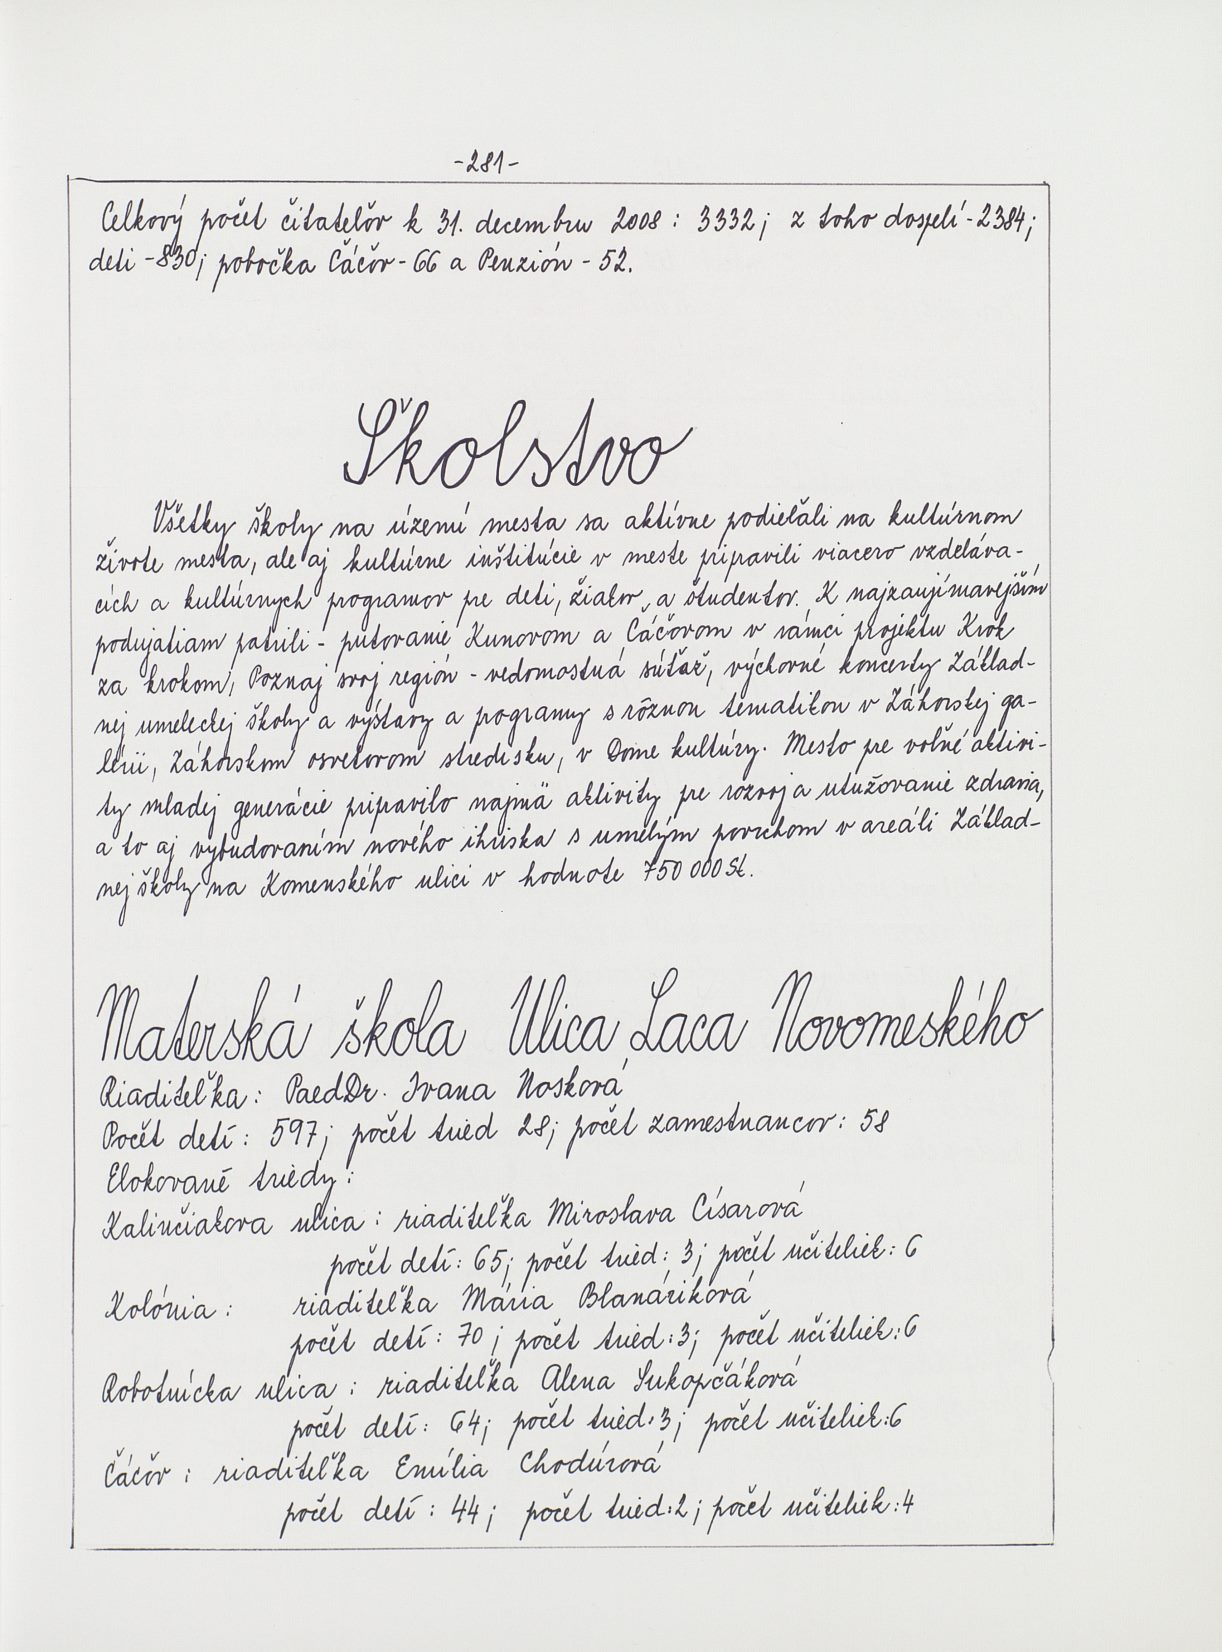 -281-
Celkový počet čitateľov k 31. decembru 2008 : 3332; z toho dospelí - 2384;
deti - 830; pobočka Čáčov - 66 a Penzión - 52.
Školstvo
Všetky školy na území mesta sa aktívne podieľali na kultúrnom
živote mesta, ale aj kultúrne inštitúcie v meste pripravili viacero vzdeláva-
cích a kultúrnych programov pre deti, žiakov a študentov. K najzaujímavejším
podujatiam patrili - putovanie Kunovom a Čáčovom v rámci projektu Krok
za krokom, Poznaj svoj región - vedomostná súťaž, výchovné koncerty Základ-
nej umeleckej školy a výstavy a pogramy s rôznou tematikou v Záhorskej ga-
lérii, Záhorskom osvetovom stredisku, v Dome kultúry. Mesto pre voľné aktivi-
ty mladej generácie pripravilo najmä aktivity pre rozvoj a utužovanie zdravia,
a to aj vybudovaním nového ihriska s umelým povrchom v areáli Základ-
nej školy na Komenského ulici v hodnote 750 000 Sk.
Materská škola Ulica Laca Novomeského
Riaditeľka : PaedDr. Ivana Nosková
Počet detí : 597; počet tried 28; počet zamestnancov : 58
Elokované triedy :
Kalinčiakova ulica : riaditeľka Miroslava Císarová
počet detí : 65; počet tried : 3; počet učiteliek : 6
Kolónia : riaditeľka Mária Blanáriková
počet detí : 70 ; počet tried : 3; počet učiteliek : 6
Robotnícka ulica : riaditeľka Alena Sukopčáková
počet detí : 64; počet tried : 3; počet učiteliek : 6
Čáčov : riaditeľka Emília Chodúrová
počet detí : 44; počet tried : 2; počet učiteliek : 4